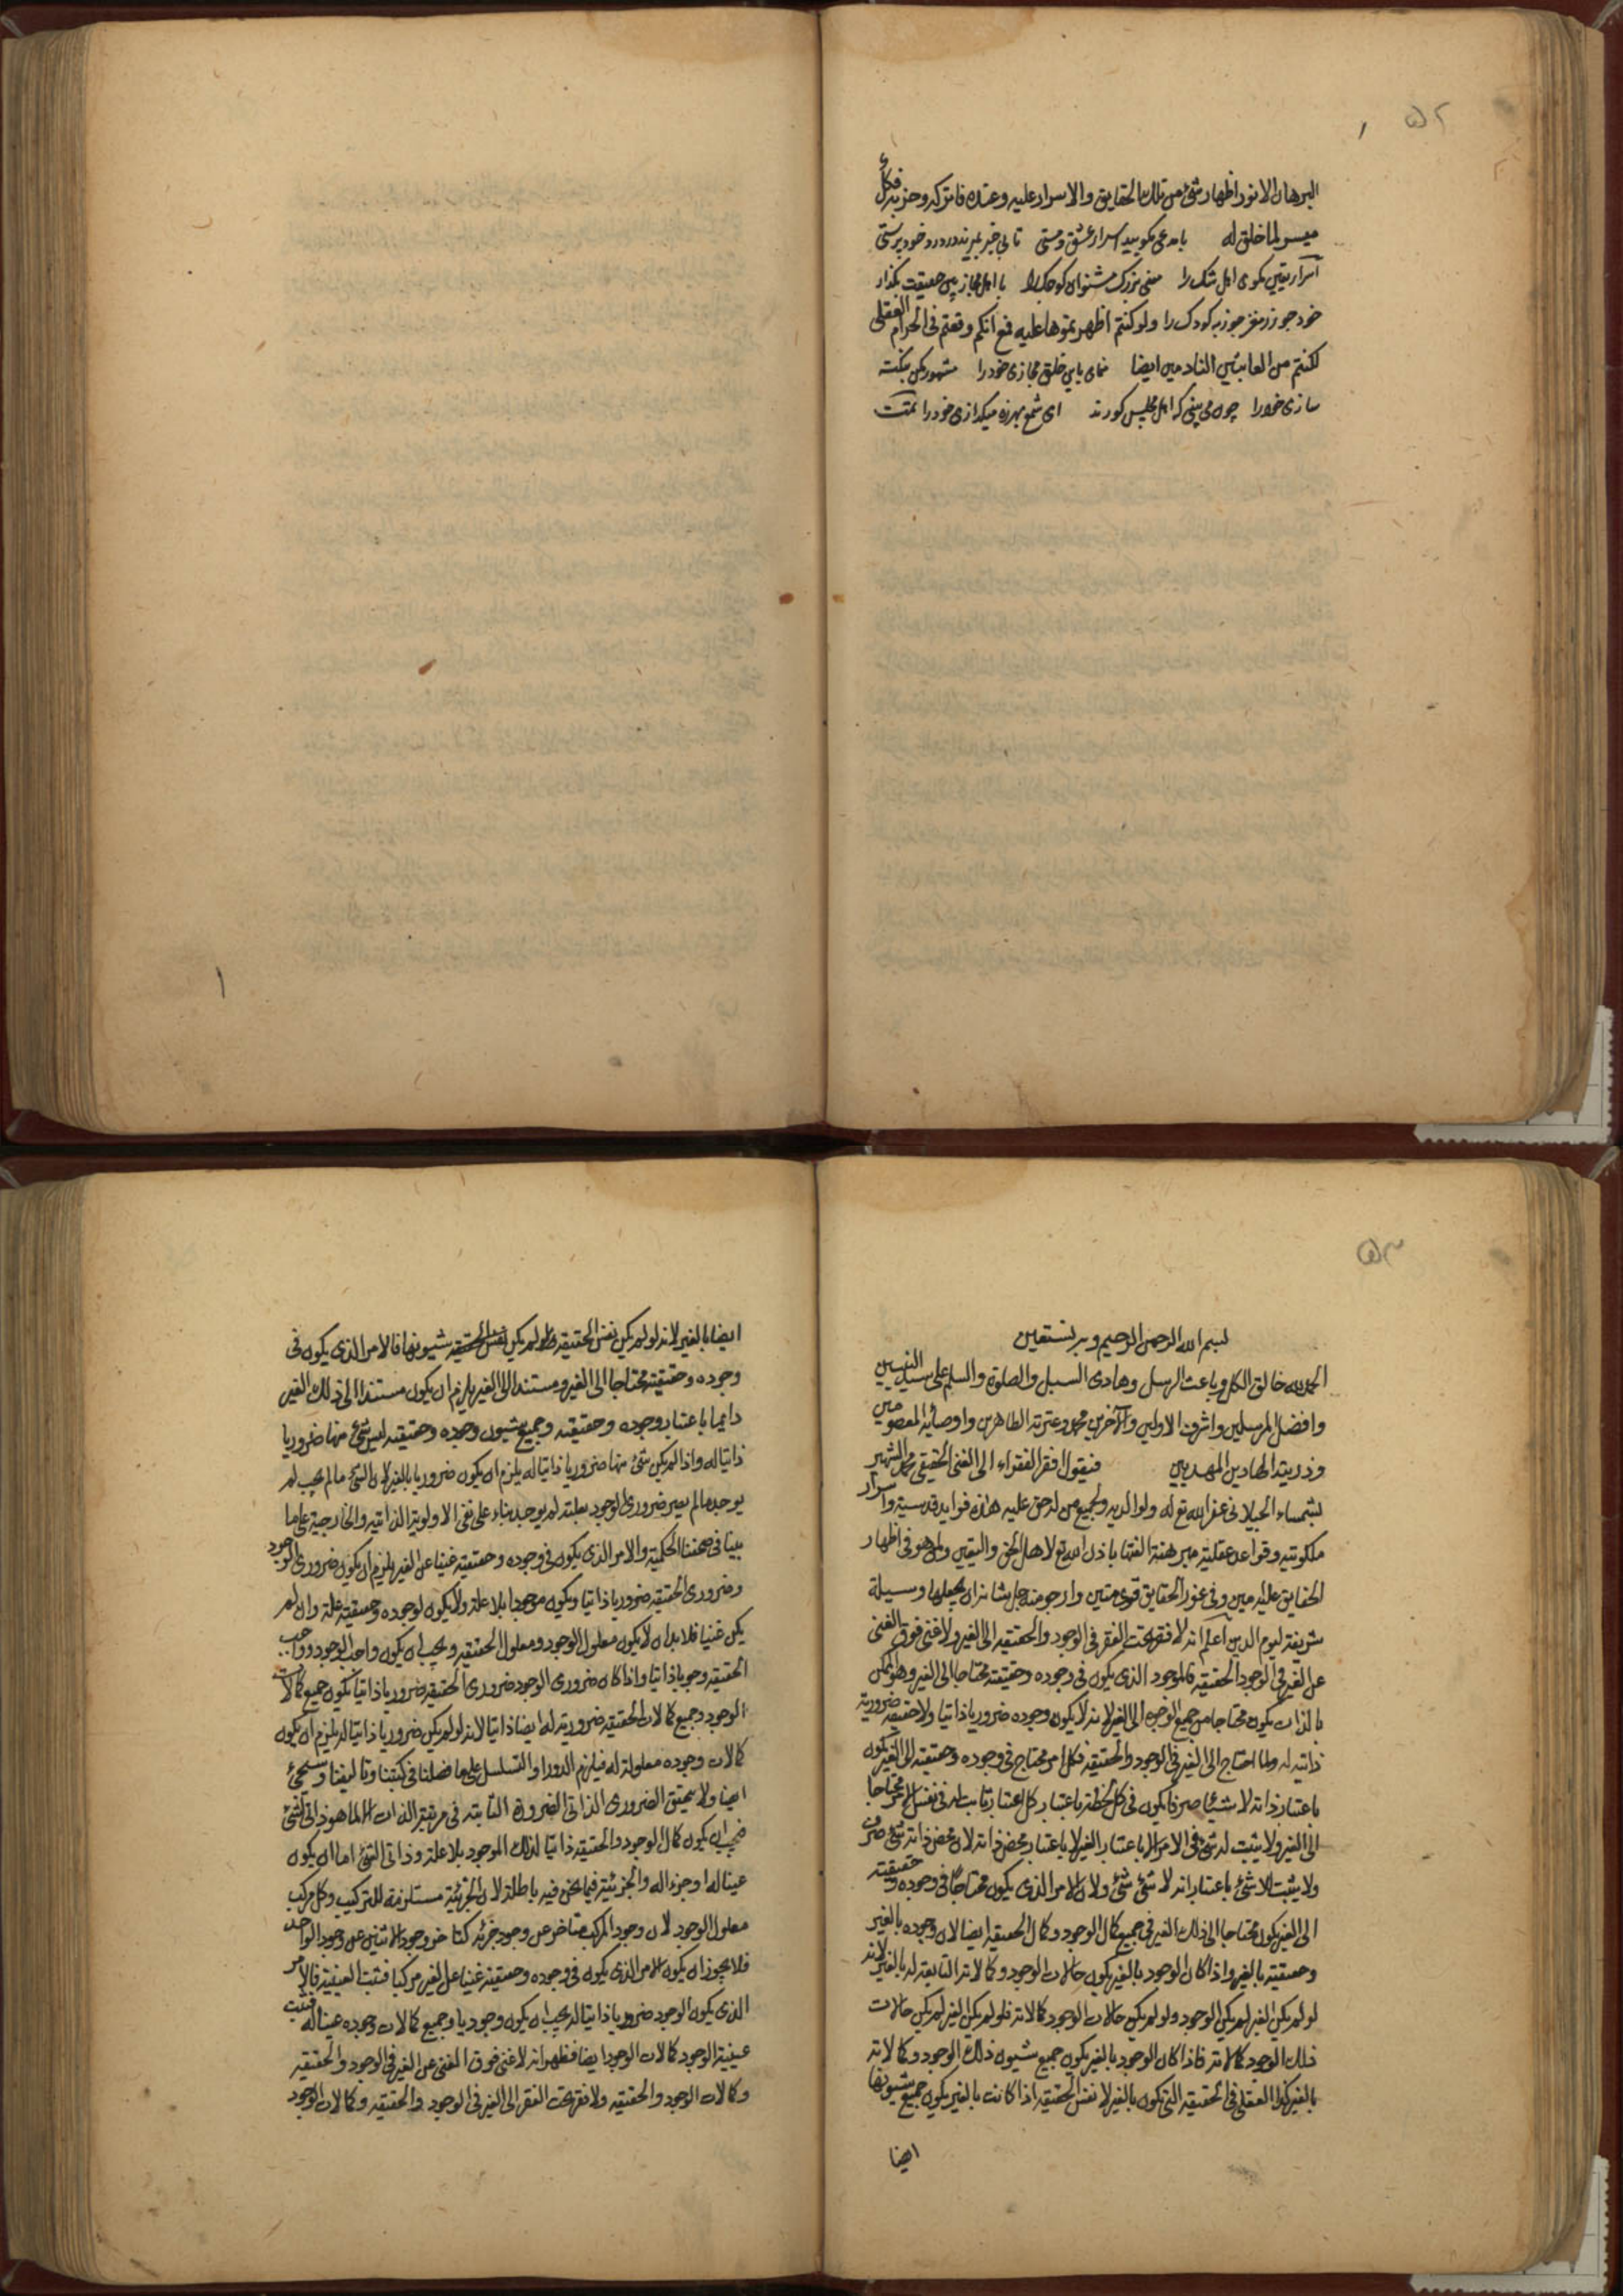 ۵۲
البرهان الانور اظهار شئ من تلك الحقايق والاسرار عليه وعنده فاتركه وحزبه فكل
ميسر لما خلق له با مدعی مکویید اسرار عشق و مستی تا بی خبر بمیرد در درد خود پرستی
اسرار یقین مکوی اهل شک را با اهل مجاز پس حقیقت مکذار
خود جوز ز مغز جوز به کودک را ولو كنتم اظهرتموها عليه فمع انكم وقعتم فى الحرام العقلى
لكنتم من العابثين النادمين ايضا منمای باین خلق مجازی خود را مشهور مکن بنکته
سازی خود را چون می بینی که اهل مجلس کورند ای شمع بهرزه میکدازی خود را تمت
۱
۵۳
بسم الله الرحمن الرحيم وبه نستعين
الحمد لله خالق الكل وباعث الرسل وهادى السبل والصلوة والسلم على سيد النبيين
وافضل المرسلين واشرف الاولين والآخرين محمد وعترته الطاهرين واوصيائه المعصومين
وذريته الهادين المهديين فيقول افقر الفقراء الى الغنى الحقيقى محمد الشهير
بشمساء الجيلانى غفر الله تع له ولوالديه ولجميع من له حق عليه هذه فوايد قدسية واسرار
ملكوتيه وقواعد عقلية مبرهنة الفتها باذن الله تع لاهل الحق واليقين ولمن هو فى اظهار
الحقايق عليه مبين وفى غور الحقايق قوى متين وارجو منه جل شانه ان يجعلها وسيلة
شريفة ليوم الدين اعلم انه لا فقر تحت الفقر فى الوجود والحقيقه الى الغير ولا غنى فوق الغنى
عن الغير فى الوجود والحقيقة فالموجود الذى يكون فى وجوده وحقيقته محتاجا الى الغير وهو الممكن
بالذات يكون محتاجا من جميع الوجوه الى الغير لانه لا يكون وجوده ضروريا ذاتيا ولا حقيقته ضرورية
ذاتيه له ولما احتاج الى الغير فى الوجود والحقيقة فكل امر محتاج فى وجوده وحقيقته الى الغير يكون
باعتبار ذاته لا شيئا صرفا يكون فى كل لحظة باعتبار كل اعتبار ثابت له فى نفس الامر محتاجا
الى الغير ولا يثبت له شئ فى الامر الا باعتبار الغير لا باعتبار محض ذاته لان محض ذاته لا شئ صرف
ولا يثبت للاشئ باعتبار انه لا شئ شئ ولان الامر الذى يكون محتاجا فى وجوده وحقيقته
الى الغير يكون محتاجا الى ذلك الغير فى جميع كمال الوجود وكمال الحقيقة ايضا لان وجوده بالغير
وحقيقته بالغير واذا كان الوجود بالغير يكون حالات الوجود وكمالاته التابعة له بالغير لانه
لو لم يكن الغير لم يكن الوجود ولو لم يكن حالات الوجود كمالاته فلو لم يكن الغير لم يكن حالات
ذلك الوجود وكمالاته فاذا كان الوجود بالغير يكون جميع شيون ذلك الوجود وكمالاته
بالغير كذا العقلى فى الحقيقه التى تكون بالغير لان نفس الحقيقه اذا كانت بالغير يكون جميع شيونها
ايضا
ايضا بالغير لانه لو لم يكن نفس الحقيقه لم يكن شيونها فالامر الذى يكون فى
وجوده وحقيقته محتاجا الى الغير ومستندا الى الغير يلزم ان يكون مستندا الى ذلك الغير
دايما باعتبار وجوده وحقيقته وجميع شيون وجوده وحقيقته ليس شئ منها ضروريا
ذاتيا له واذا لم يكن شئ منها ضروريا ذاتيا له يلزم ان يكون ضروريا بالغير لان الشئ ما لم يجب لم
يوجد ما لم يصر ضرورى الوجود بعلته لم يوجد بناء على نفى الاولوية الذاتيه والخارجية على ما
بينا فى صحفنا الحكمية والامر الذى يكون فى وجوده وحقيقته غنيا عن الغير يلزم ان يكون ضرورى الوجود
وضرورى الحقيقه ضروريا ذاتيا ويكون موجودا بلا علة ولا يكون لوجوده وحقيقته علة وان لم
يكن غنيا فلا بد ان لا يكون معلول الوجود ومعلول الحقيقه ويجب ان يكون واجب الوجود وواجب
الحقيقه وجوبا ذاتيا واذا كان ضرورى الوجود ضرورى الحقيقه ضروريا ذاتيا يكون جميع كمالات
الوجود وجميع كمالات الحقيقه ضرورية له ايضا ذاتيا لانه لو لم يكن ضروريا ذاتيا له يلزم ان يكون
كمالات وجوده معلولة له فيلزم الدور او التسلسل على ما فصلنا فى كتبنا وتاليفنا وسيجئ
ايضا ولا يتحقق الضرورى الذاتى الضرورة الثابته فى مرتبة الذات الا لما هو ذاتى الشئ
فيجب ان يكون كمال الوجود والحقيقه ذاتيا لذلك الموجود بلا علة وذاتى الشئ اما ان يكون
عينا له او جزءا له والجزئية فيما نحن فيه باطلة لان الجزئية مستلزمة للتركيب وكل مركب
معلول الوجود لان وجود المركب متاخر عن وجود جزئه كتاخر وجود الاثنين عن وجود الواحد
فلا يجوز ان يكون الامر الذى يكون فى وجوده وحقيقته غنيا عن الغير مركبا فثبت العينية فالامر
الذى يكون الوجود ضروريا ذاتيا له يجب ان يكون وجوديا وجميع كمالات وجوده عينا له فثبت
عينية الوجود كمالات الوجود ايضا فظهر انه لا غنى فوق الغنى عن الغير فى الوجود والحقيقه
وكمالات الوجود والحقيقه ولا فقر تحت الفقر الى الغير فى الوجود والحقيقه وكمالات الوجود